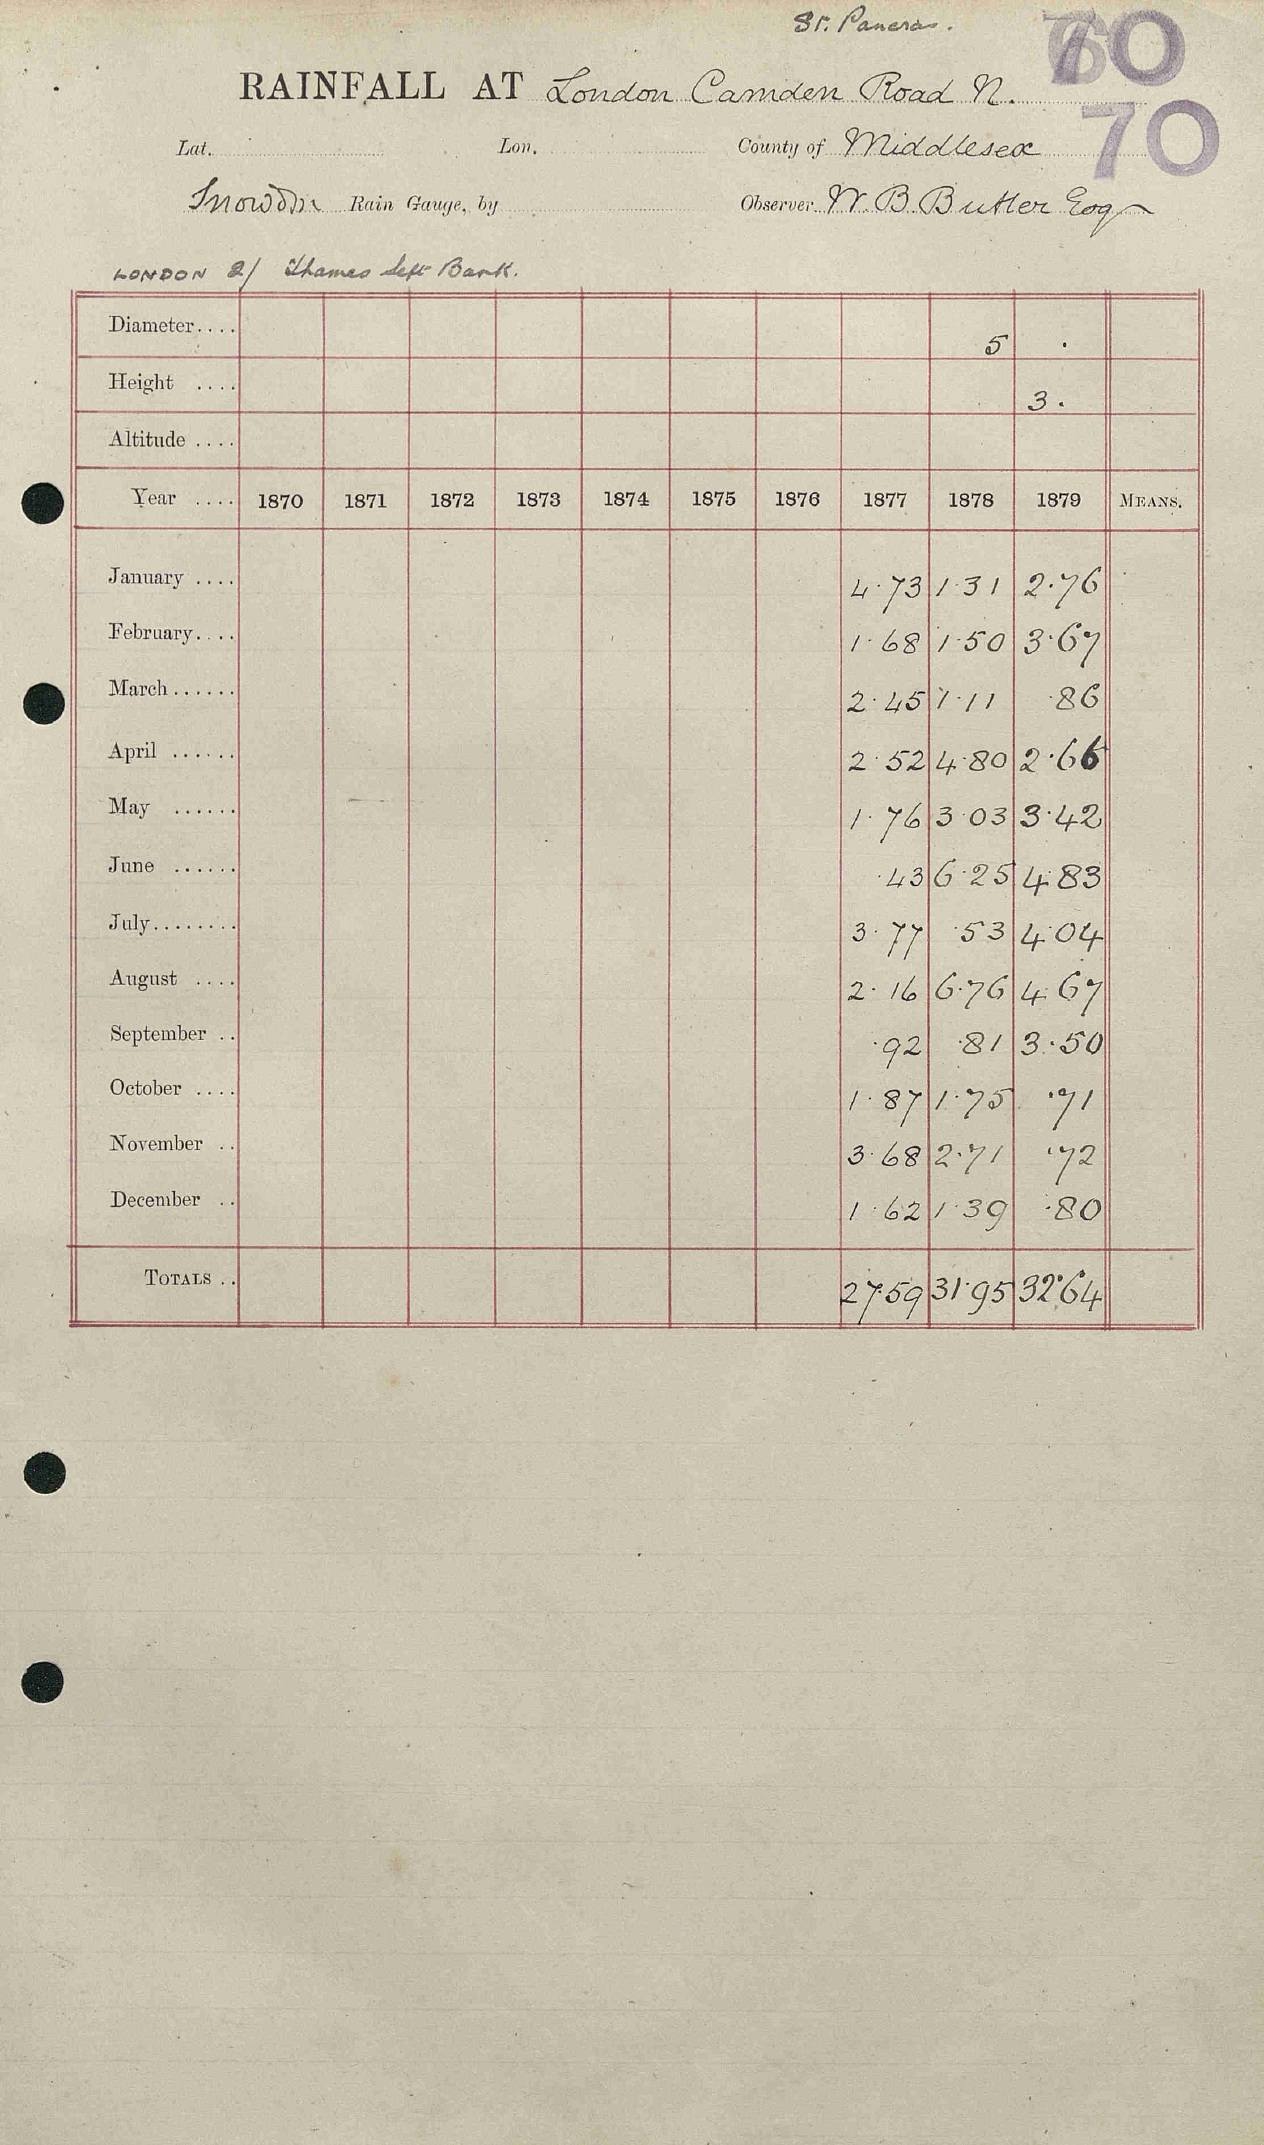 St. Pancras.
70
RAINFALL AT London Camden Road N.
70
Lat. Lon. County of Middlesex
Snowdon Rain Gauge, by Observer W. B. Butler Esq
LONDON 2/ Thames Left Bank.
Diameter.... 5 .
Height .... 3.
Altitude ....
Year .... 1870 1871 1872 1873 1874 1875 1876 1877 1878 1879 MEANS.
January .... 4.73 1.31 2.76
February.... 1.68 1.50 3.67
March...... 2.45 1.11 .86
April ...... 2.52 4.80 2.66
May ...... 1.76 3.03 3.42
June ...... .43 6.25 4.83
July........ 3.77 .53 4.04
August .... 2.16 6.76 4.67
September .. .92 .81 3.50
October .... 1.87 1.75 .71
November .. 3.68 2.71 .72
December .. 1.62 1.39 .80
TOTALS .. 27.59 31.95 32.64